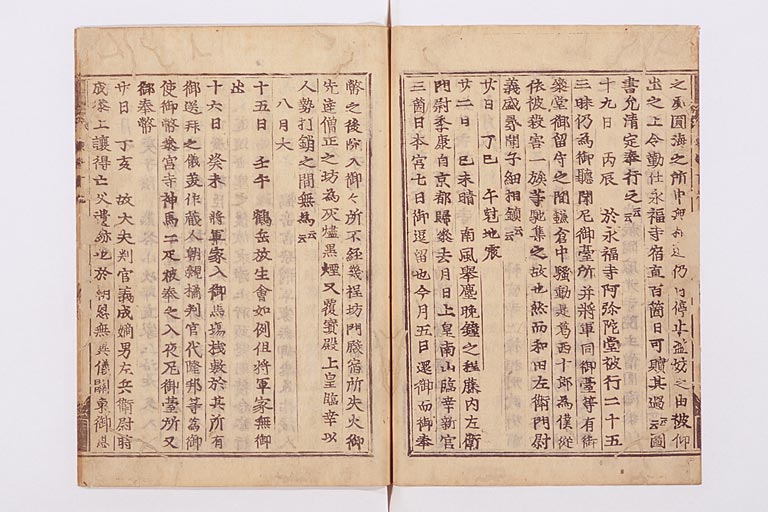 之処圓海之所申
出之上令勤仕永福寺宿直百箇日可贖其過云云圓
書允清定奉行之云云
十九日　丙辰　於永福寺阿弥陀堂被行二十五
三昧仍為御聴聞尼御臺所并將軍同御臺等有御
御留守之間鎌倉中騒動是葛西十郎為僕從
依被殺害一族等馳集之故也然而和田左衛門尉
義盛尋聞子細相鎮云云
廿日　丁巳　午尅地震
廿二日　己未暗　南風擧塵晩鐘之程藤内左衛
門尉季康自京都歸參去月日上皇南山臨幸新宮
三箇日本宮七日御逗留也今月五日還御而御奉
幣之後院入御々所不經幾程坊門殿宿所失火御
先達僧正之坊為灰燼黒煙又覆寶殿上皇臨幸以
人勢打鎖之間無為云云
八月大
十五日　壬午　鶴岳放生會如例但將軍家無御
出
十六日　癸未　將軍家入御馬場棧敷於其所有
御遥拜之儀美作藏人朝親橘判官代隆邦等為御
使御幣參宮寺神馬二疋被奉之入夜尼御臺所又
御奉幣
廿日　丁亥　故大夫判官義成嫡男左兵衛尉時
成參上讓得亡父遺跡也於朝恩無異儀關東御恩